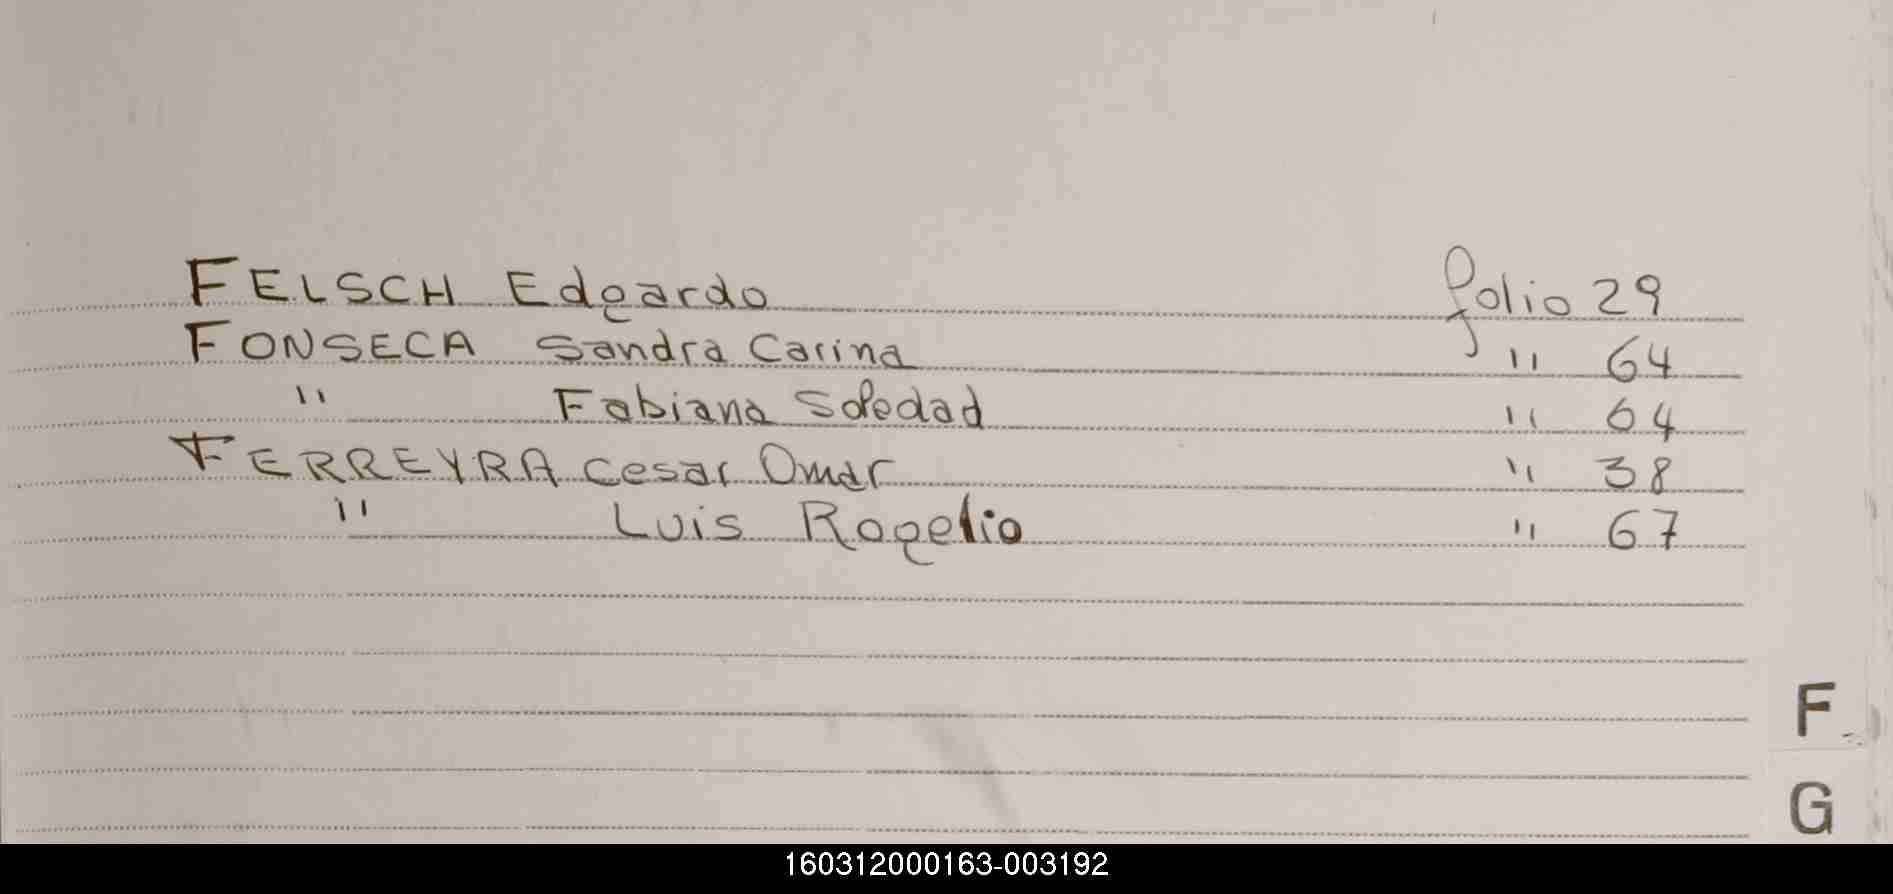 FELSCH Edgardo folio 29
FONSECA Sandra Carina " 64
" Fabiana Soledad " 64
FERREYRA Cesar Omar " 38
" Luis Rogelio " 67
F
G
160312000163-003192